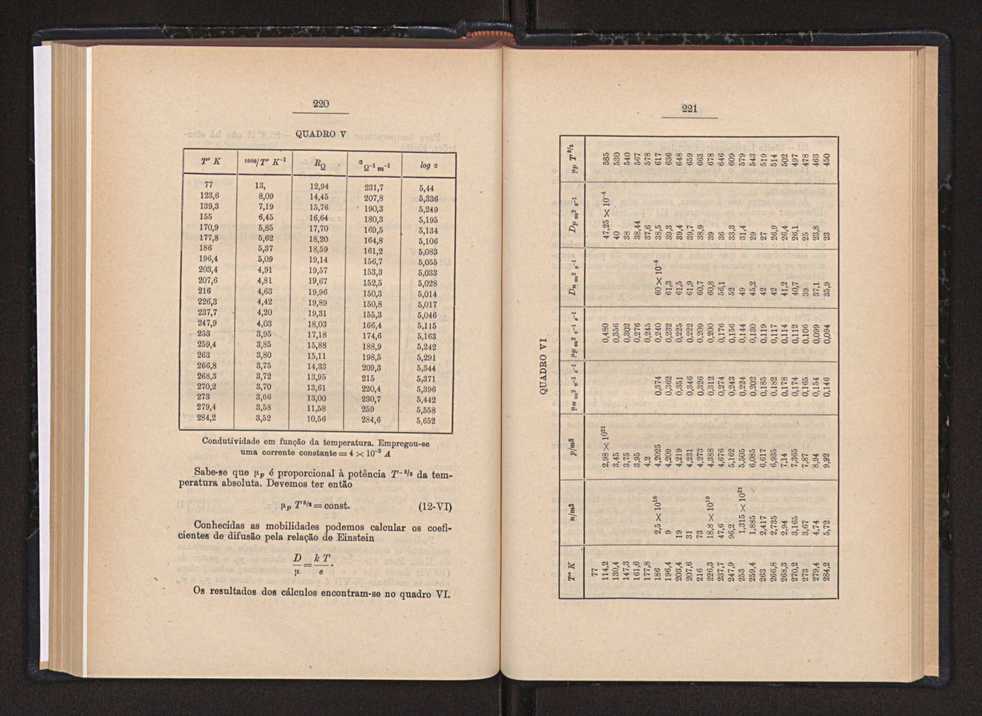 220
QUADRO V
Tº K 1000/Tº K⁻¹ R Ω σ Ω⁻¹ m⁻¹ log σ
77 13, 12,94 231,7 5,44
123,6 8,09 14,45 207,8 5,336
139,3 7,19 15,76 190,3 5,249
155 6,45 16,64 180,3 5,195
170,9 5,85 17,70 169,5 5,134
177,8 5,62 18,20 164,8 5,106
186 5,37 18,59 161,2 5,083
196,4 5,09 19,14 156,7 5,055
203,4 4,91 19,57 153,3 5,033
207,6 4,81 19,67 152,5 5,028
216 4,63 19,96 150,3 5,014
226,3 4,42 19,89 150,8 5,017
237,7 4,20 19,31 155,3 5,046
247,9 4,03 18,03 166,4 5,115
253 3,95 17,18 174,6 5,163
259,4 3,85 15,88 188,9 5,242
263 3,80 15,11 198,5 5,291
266,8 3,75 14,33 209,3 5,344
268,3 3,72 13,95 215 5,371
270,2 3,70 13,61 220,4 5,396
273 3,66 13,00 230,7 5,442
279,4 3,58 11,58 259 5,558
284,2 3,52 10,56 284,6 5,652
Condutividade em função da temperatura. Empregou-se
uma corrente constante = 4 × 10⁻³ A
Sabe-se que μp é proporcional à potência T⁻³/² da tem-
peratura absoluta. Devemos ter então
μp T³/² = const. (12-VI)
Conhecidas as mobilidades podemos calcular os coefi-
cientes de difusão pela relação de Einstein
D/μ = k T/e .
Os resultados dos cálculos encontram-se no quadro VI.
221
QUADRO VI
Tº K n/m3 p/m3 μn m² v⁻¹ s⁻¹ μp m² v⁻¹ s⁻¹ Dn m² s⁻¹ Dp m² s⁻¹ μp T³/²
77 2,98 × 10²¹ 0,480 47,25 × 10⁻⁴ 585
114,2 3,45 0,356 40 530
130,4 3,75 0,302 38 540
147,3 3,95 0,276 38,44 567
161,6 4,2 0,245 37,6 578
177,8 4,2025 0,240 38,5 617
186 2,5 × 10¹⁶ 4,209 0,374 0,232 60 × 10⁻⁴ 39,3 636
196,4 9 4,219 0,362 0,225 61,3 39,4 648
203,4 19 4,231 0,351 0,222 61,5 39,7 659
207,6 31 4,273 0,346 0,209 61,9 38,9 663
216 73 4,388 0,326 0,200 60,7 39 678
226,3 18,8 × 10¹⁹ 4,676 0,312 0,176 60,8 36 646
237,7 47,6 5,162 0,274 0,156 56,1 33,3 609
247,9 96,2 5,505 0,243 0,144 52 31,4 579
253 1,315 × 10²¹ 6,085 0,224 0,130 49 29 543
259,4 1,885 6,617 0,202 0,119 45,2 27 519
263 2,417 6,935 0,185 0,117 42 26,9 514
266,8 2,735 7,14 0,182 0,114 42 26,4 502
268,3 2,94 7,365 0,178 0,112 41,2 26,1 497
270,2 3,165 7,87 0,174 0,106 40,7 25 478
273 3,67 8,94 0,165 0,099 39 23,8 463
279,4 4,74 9,92 0,154 0,094 37,1 23 450
284,2 5,72 0,146 35,9